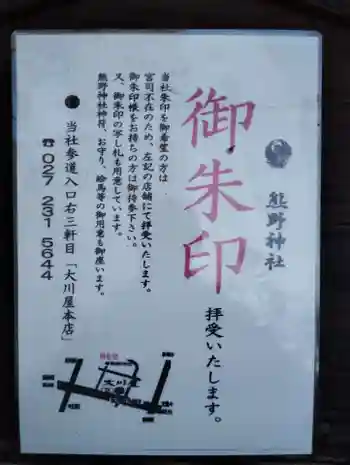 熊野神社
御朱印
拝受いたします。
当社朱印を御希望の方は
宮司不在のため、左記の店舗にて拝受いたします。
御朱印帳をお持ちの方は御持参下さい。
又、御朱印の写し札も用意しています。
熊野神社神符、お守り、絵馬等の御用意も御座います。
●当社参道入口右三軒目「大川屋本店」
☎027 231 5644
大川屋